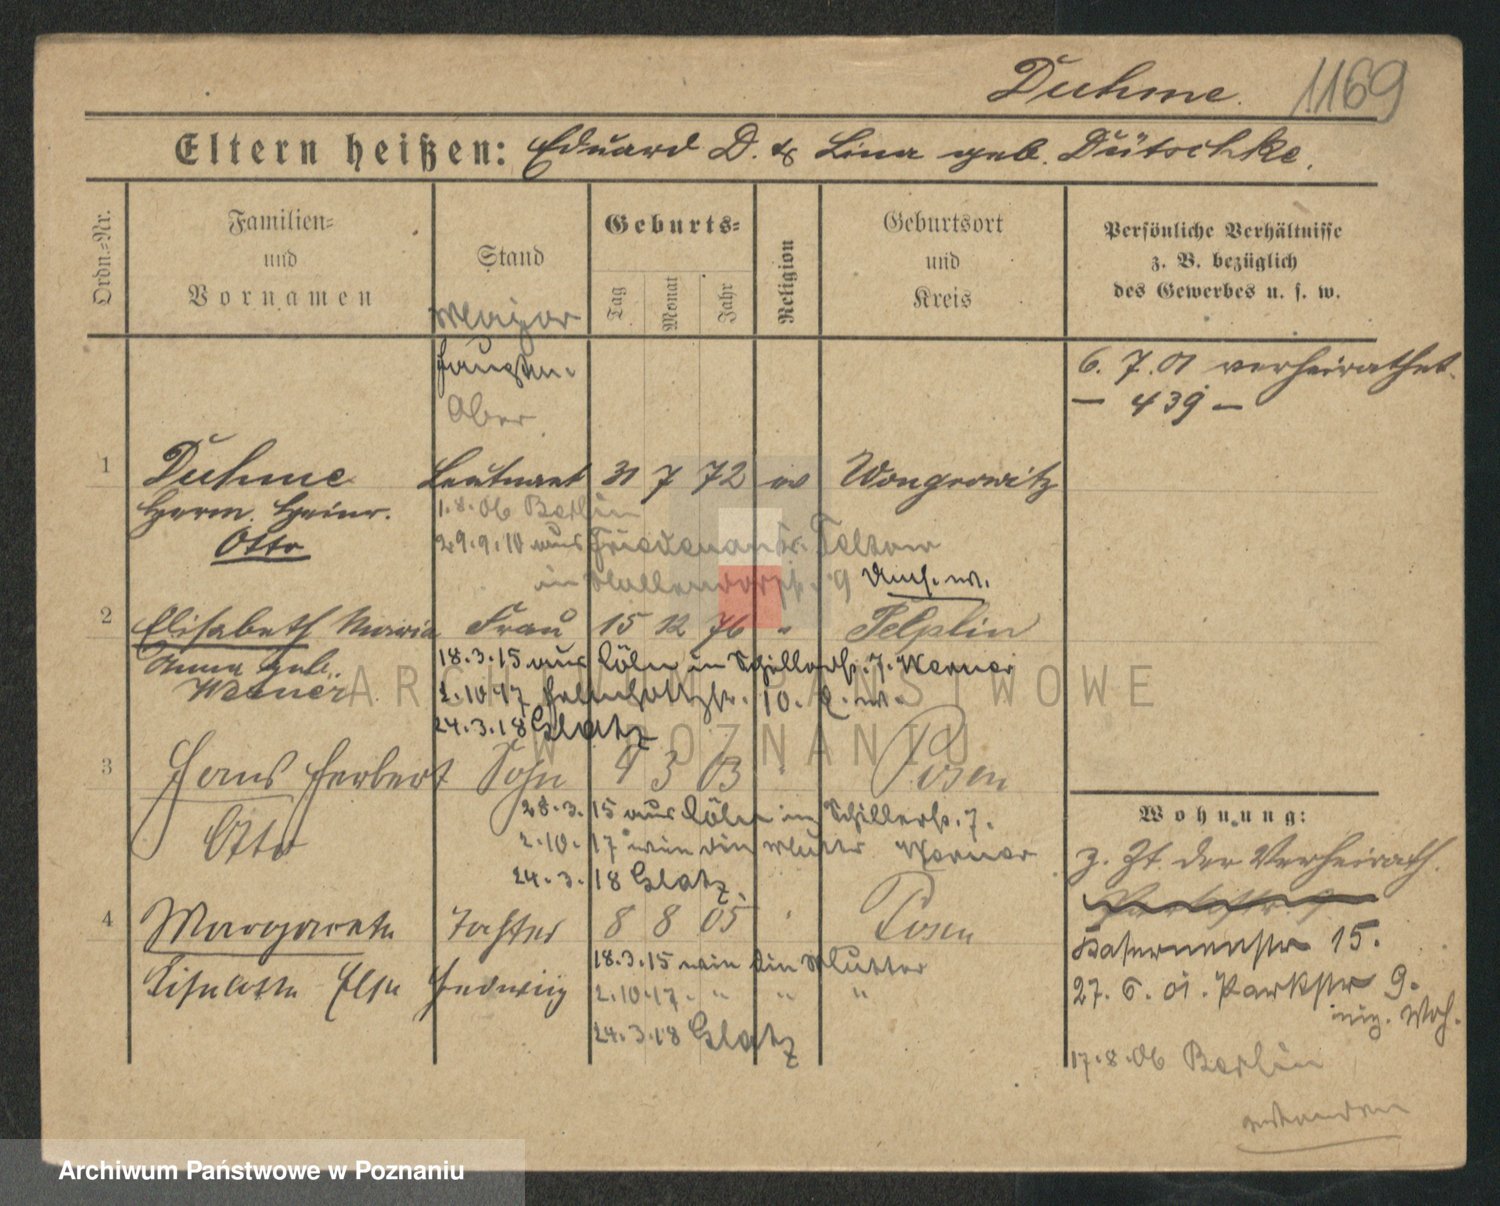 Duhme. 1169
Eltern heißen: Eduard D. & Lina geb. Dütschke.
Ordn.-Nr.
Familien-
und
Vornamen
Stand
Geburts-
Tag
Monat
Jahr
Religion
Geburtsort
und
Kreis
Persönliche Verhältnisse
z. B. bezüglich
des Gewerbes u. s. w.
Major
Hauptm.
Ober
6. 7. 01 verheirathet.
— 439 —
1 Duhme Leutnant 31 7 72 ev Wongrowitz
Herm. Heinr. 1.8.06 Berlin
Otto 29.9.10 aus Friedenau Kr. Teltow
in 9
2 Elisabeth Maria Frau 15 12 76 " Pelplin
Anna geb. 18.3.15 aus Cöln in Schillerstr. 7. Werner
Werner 2.10.17 10.
24.3.18 Glatz
3 Hans Herbert Sohn 4 3 03 " Posen
Otto 28.3.15 aus Cöln in Schillerstr. 7.
2.10.17 wie die Mutter Werner
24.3.18 Glatz
4 Margarete Tochter 8 8 05 " Posen
Liselotte Else Hedwig 18.3.15 wie die Mutter
2.10.17. " " "
24.3.18 Glatz
Wohnung:
z. Zt. der Verheirath.
Kasernenstr 15.
27. 6. 01. Parkstr 9.
Woh.
17.8.06 Berlin
ARCHIWUM PAŃSTWOWE
W POZNANIU
Archiwum Państwowe w Poznaniu